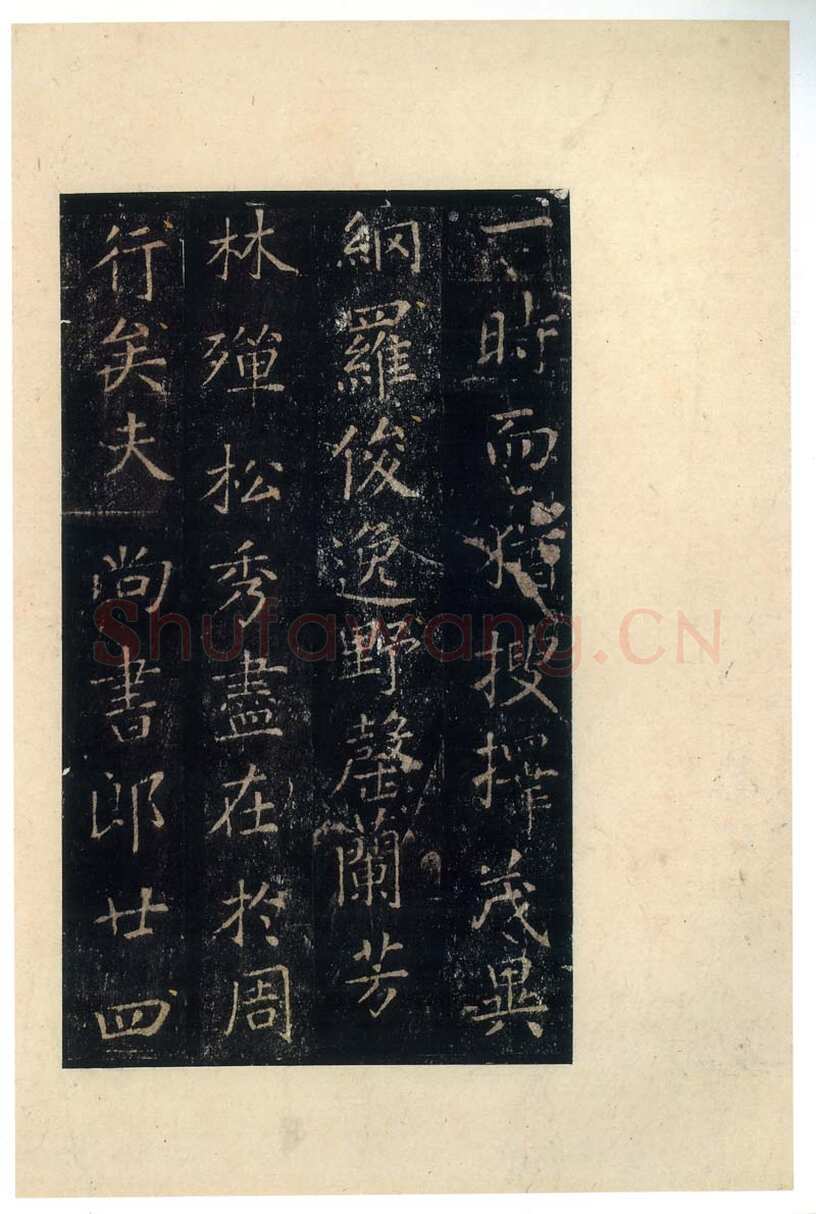 一時而猶搜擇茂異
網羅俊逸野罄蘭芳
林殫松秀盡在於周
行矣夫尚書郎廿四
Shufawang.CN